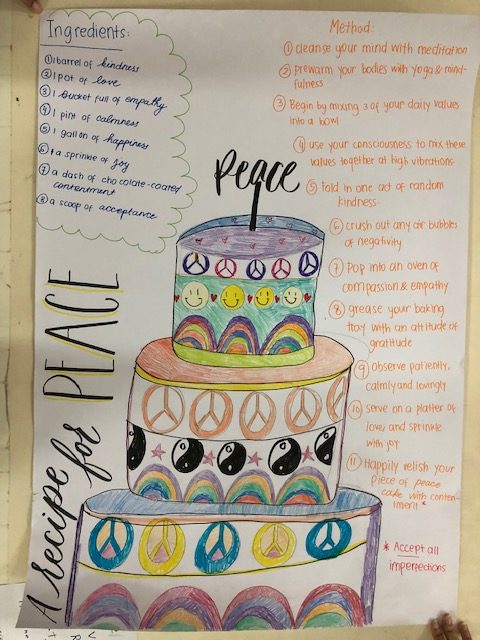 Ingredients:
① 1 barrel of kindness
② 1 pot of love
③ 1 bucket full of empathy
④ 1 pint of calmness
⑤ 1 gallon of happiness
⑥ a sprinkle of joy
⑦ a dash of chocolate-coated
contentment
⑧ a scoop of acceptance
Method:
① cleanse your mind with meditation
② prewarm your bodies with yoga & mind-
fulness
③ Begin by mixing 3 of your daily values
into a bowl
④ use your consciousness to mix these
values together at high vibrations.
⑤ fold in one act of random
kindness.
⑥ crush out any air bubbles
of negativity
⑦ Pop into an oven of
compassion & empathy
⑧ grease your baking
tray with an attitude of
gratitude
⑨ observe patiently,
calmly and lovingly
⑩ serve on a platter of
love, and sprinkle
with joy
⑪ Happily relish your
piece of peace
cake with conten-
tment *
* Accept all
imperfections
peace
A recipe for PEACE